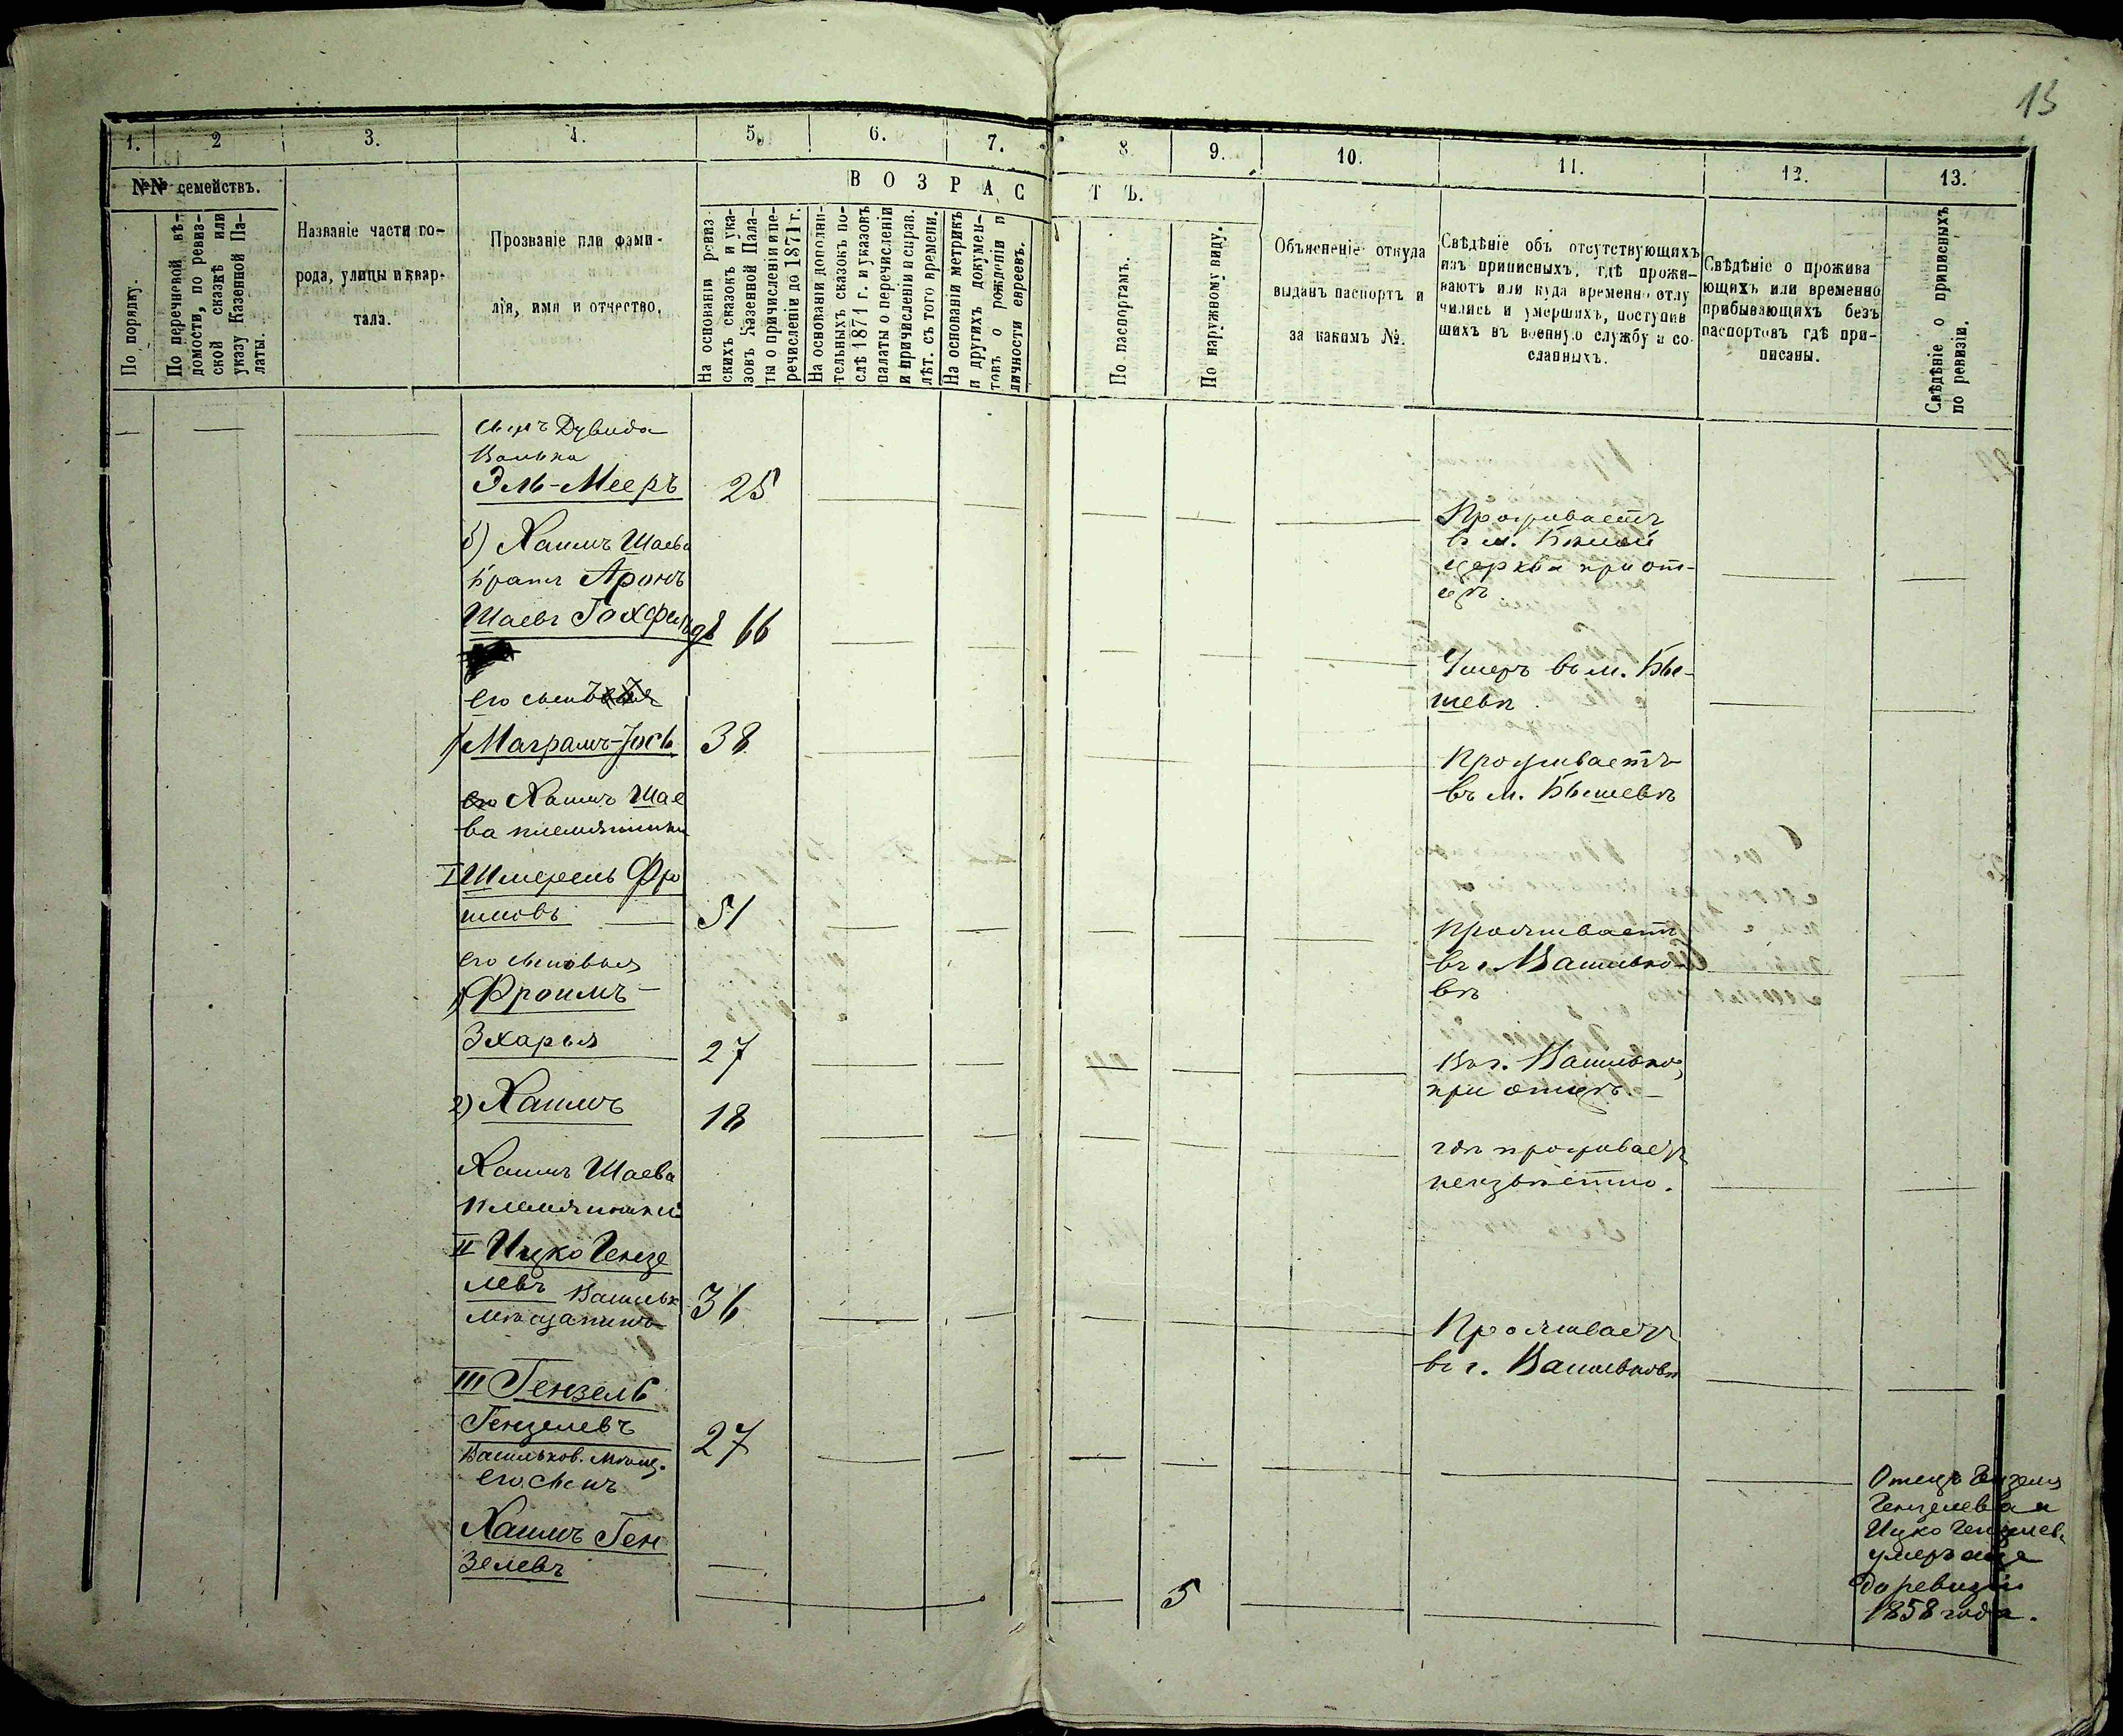 13
1.
2
3.
4.
5.
6.
7.
8.
9.
10.
11.
12.
13.
№№ семействъ.
ВОЗРАС
ТЪ.
По порядку.
По перечневой вѣ-
домости, по ревиз-
ской сказкѣ или
указу Казенной Па-
латы.
Названіе части го-
рода, улицы и квар-
тала.
Прозваніе или фами-
лія, имя и отчество.
На основаніи ревиз
скихъ сказокъ и ука-
зовъ Казенной Пала-
ты о причисленіи и пе-
речисленіи до 1871 г.
На основаніи дополни-
тельныхъ сказокъ по-
слѣ 1871 г. и указовъ
палаты о перечисленіи
и причисленіи и справ.
лѣт. съ того времени.
На основаніи метрикъ
и другихъ докумен-
товъ о рожденіи и
личности евреевъ.
По паспортамъ.
По наружному виду.
Объясненіе откуда
выданъ паспортъ и
за какимъ №.
Свѣдѣніе объ отсутствующихъ
изъ приписныхъ, гдѣ прожи-
ваютъ или куда временно отлу
чились и умершихъ, поступив
шихъ въ военную службу и со
сланныхъ.
Свѣдѣніе о прожива
ющихъ или временно
прибывающихъ безъ
паспортовъ гдѣ при-
писаны.
Свѣдѣніе о приписныхъ
по ревизіи.
сынъ Дувида
Волька
Эль-Мееръ 25
Проживаетъ
в м. Бѣлой
церкви при от-
цѣ
5) Хаимъ Шаева
братъ Аронъ
Шаевъ Гохфельдъ 66
Умеръ въ м. Бы-
шевѣ
его сынъ
1) Маграмъ-Іось 38
Проживаетъ
въ м. Бышевѣ
Хаимъ Шае
ва племянники
I Шмерель Фро
имовъ 51
Проживаетъ
в г. Василько-
вѣ
его сыновья
1) Фроимъ
Зхарья 27
В г. Василько,
при отцѣ
2) Хаимъ 18
гдѣ проживаетъ
неизвѣстно.
Хаимъ Шаева
племянники
II Ицко Гензе
левъ Васильк
мѣщанинъ 36
Проживаетъ
в г. Васильковѣ
III Гензель
Гензелевъ 27
Васильков. мѣщ.
его сынъ
Хаимъ Ген
зелевъ
5
Отецъ Гензеля
Гензелева и
Ицко Гензелев.
умеръ еще
до ревизіи
1858 года.